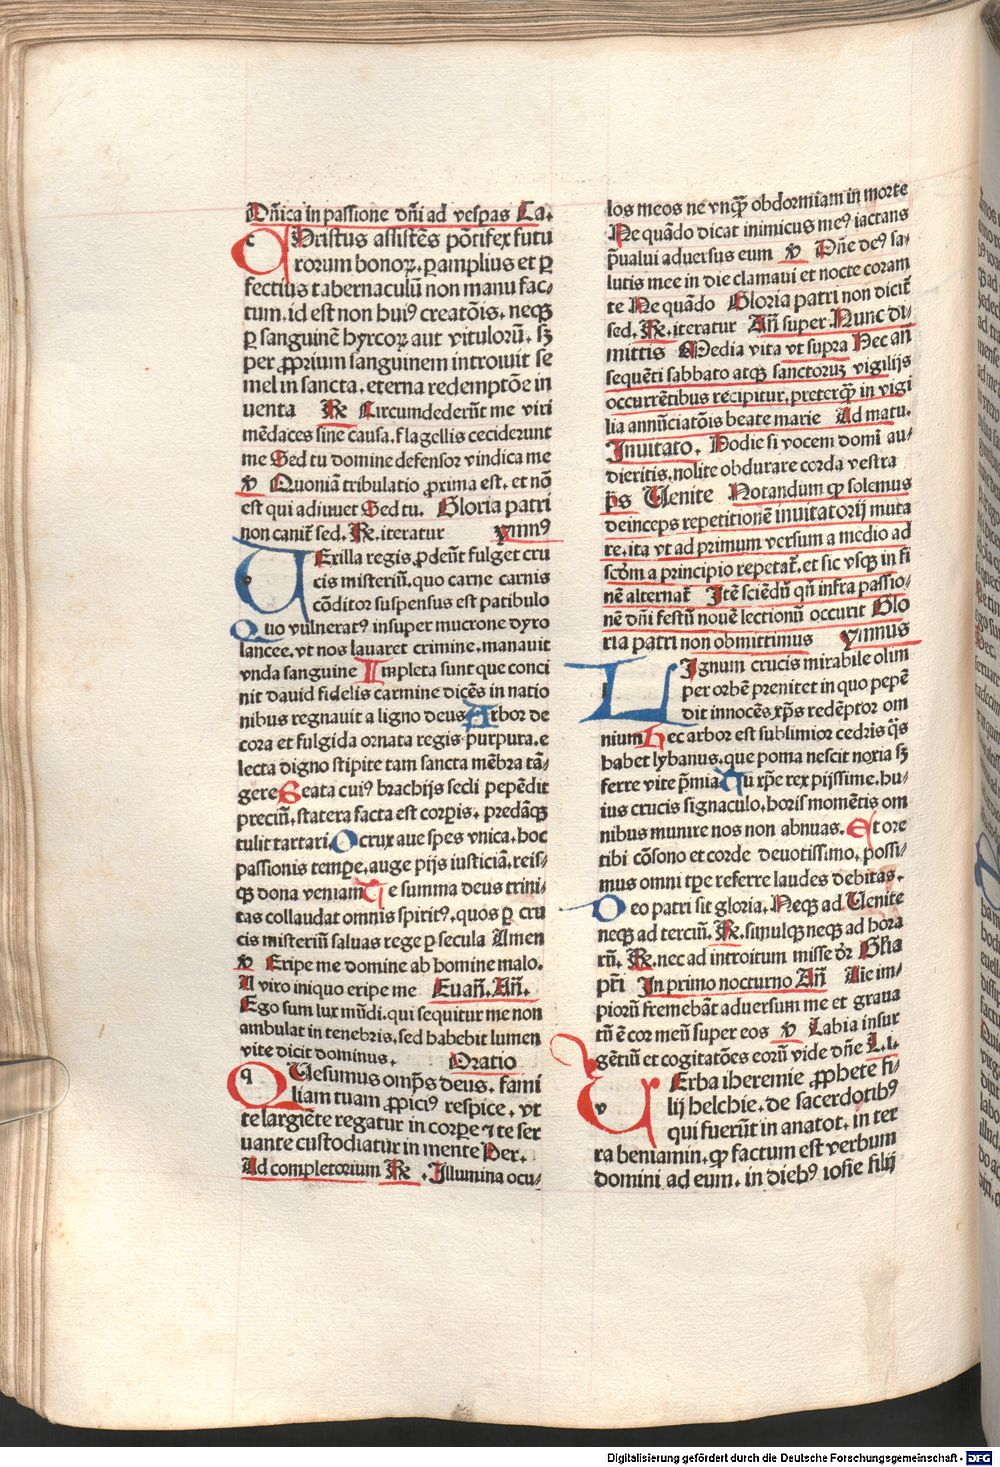 Dñica in passione dñi ad vesꝑas Ca.
CHristus assistẽs põtifex futu
rorum bonoꝝ. ꝑ amplius et ꝑ
fectius tabernaculũ non manu fac⸗
tum. id est non huiꝰ creatõis. neqꝫ
ꝑ sanguinẽ hyrcoꝝ aut vituloꝝũ. sꝫ
per ꝓprium sanguinem introiuit se
mel in sancta. eterna redemptõe in
uenta ℞ Circumdederũt me viri
mẽdaces sine causa. flagellis ceciderunt
me Sed tu domine defensor vindica me
℣ Quoniã tribulatio ꝓxima est. et nõ
est qui adiuuet Sed tu. Gloria patri
non canit̃ sed. ℞. iteratur ymnꝰ
VExilla regis ꝓdeũt fulget cru
cis misteriũ. quo carne carnis
cõditor suspensus est patibulo
Quo vulneratꝰ insuper mucrone dyro
lancee. vt nos lauaret crimine. manauit
vnda sanguine Impleta sunt que conci
nit dauid fidelis carmine dicẽs in natio
nibus regnauit a ligno deus Arbor de
cora et fulgida ornata regis purpura. e
lecta digno stipite tam sancta mẽbra tã⸗
gere Beata cuiꝰ brachijs secli pepẽdit
preciũ. statera facta est corꝑis. predãqꝫ
tulit tartari. O crux aue spes vnica. hoc
passionis tempꝛe. auge pijs iusticiã. reis⸗
qꝫ dona veniam Te summa deus trini⸗
tas collaudat omnis spiritꝰ. quos ꝑ cru
cis misteriũ saluas rege ꝑ secula Amen
℣ Eripe me domine ab homine malo.
A viro iniquo eripe me Euañ. Añ.
Ego sum lux mũdi. qui sequitur me non
ambulat in tenebris. sed habebit lumen
vite dicit dominus. Oratio
QUesumus omp̃s deus. fami
liam tuam ꝓpiciꝰ respice. vt
te largiẽte regatur in corꝑe ⁊ te ser
uante custodiatur in mente Per.
Ad completorium ℞. Illumina ocu⸗
los meos ne vnqꝫ̃ obdormiam in morte
Ne quãdo dicat inimicus meꝰ iactans
p̃ualui aduersus eum ℣ Dñe deꝰ sa⸗
lutis mee in die clamaui et nocte coram
te Ne quãdo Gloria patri non dicit̃
sed. ℞. iteratur Añ super. Nunc di⸗
mittis Media vita vt supra Hec añ
sequẽti sabbato atqꝫ sanctoruꝫ vigilijs
occurrẽtibus recipitur. preterqꝫ̃ in vigi
lia annũciatõis beate marie Ad matu.
Inuitato. Hodie si vocem domi au⸗
dieritis. nolite obdurare corda vestra
p̃s Uenite Notandum ꝙ solemus
deinceps repetitionẽ inuitatorij muta
re. ita vt ad primum versum a medio ad
scðm a principio repetat̃. et sic vsqꝫ in fi
nẽ alternat̃ Itẽ sciẽdũ qñ infra passio⸗
nẽ dñi festũ nouẽ lectionũ occurit Glo
ria patri non obmittimus ymnus
LIgnum crucis mirabile olim
per orbẽ prenitet in quo pepẽ
dit innocẽs xp̃s redẽptor om
nium Hec arbor est sublimior cedris q̃s
habet lybanus. que poma nescit noxia sꝫ
ferre vite p̃mia Tu xp̃e rex pijssime. hu⸗
ius crucis signaculo. horis momẽtis om
nibus munire nos non abnuas. Et ore
tibi cõsono et corde deuotissimo. possi⸗
mus omni tꝑe referre laudes debitas.
Deo patri sit gloria. Neqꝫ ad Uenite
neqꝫ ad terciũ. ℞. simulqꝫ neqꝫ ad hora
rũ. ℞. nec ad introitum misse dr̃ Glĩa
pr̃i In primo nocturno Añ Uie im⸗
piorũ fremebãt aduersum me et graua
tũ ẽ cor meũ super eos ℣ Labia insur
gẽtiũ et cogitatões eorũ vide dñe L. i.
UErba iheremie ꝓphete fi⸗
lij helchie. de sacerdotibꝰ
qui fuerũt in anatot. in ter
ra beniamin. ꝙ factum est verbum
domini ad eum. in diebꝰ iosie filij
Digitalisierung gefördert durch die Deutsche Forschungsgemeinschaft - DFG